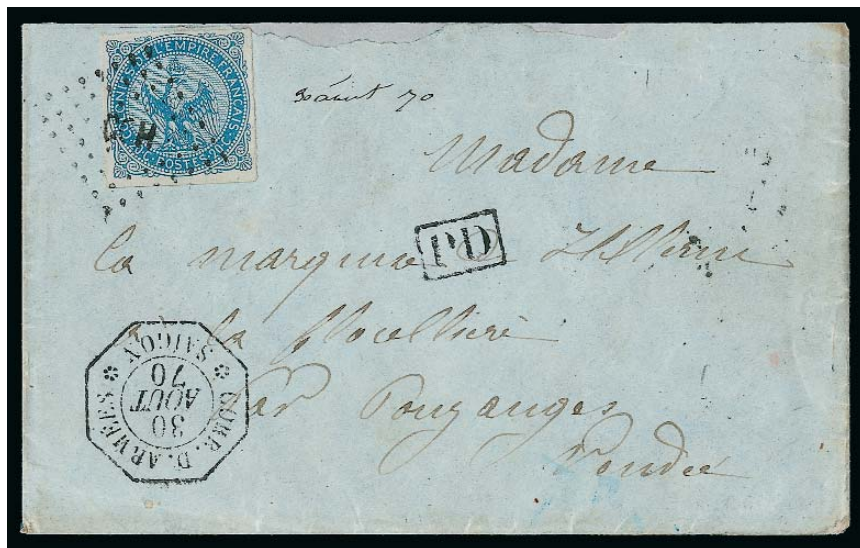 COLONIES DE L'EMPIRE FRANÇAIS
POSTES
CCH
30 août 70
Madame
la marquise
PD
la Flocellière
par Pouzauges
Vendée
CORR. D. ARMÉES
SAIGON
30
AOUT
70